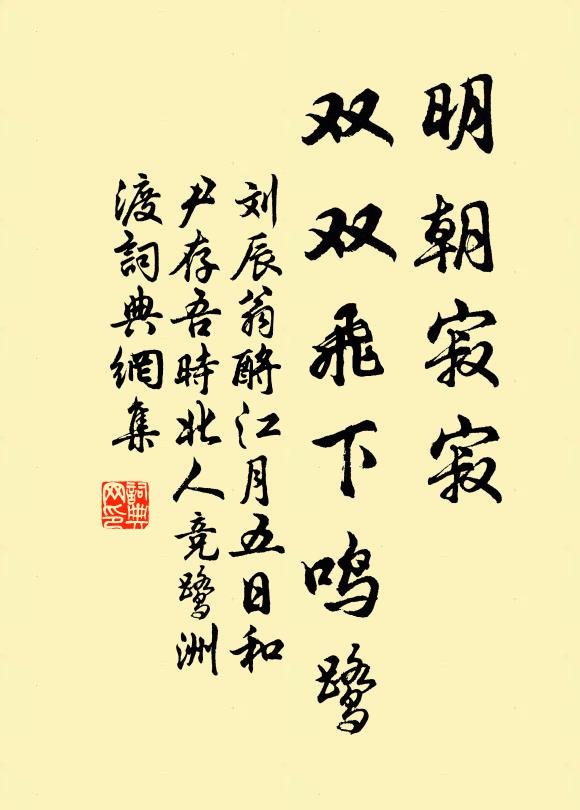 明朝寂寂
双双飛下鸣鹭
刘辰翁酹江月五日和
尹存吾時北人竞鹭洲
渡詞典網集
詞典
网印